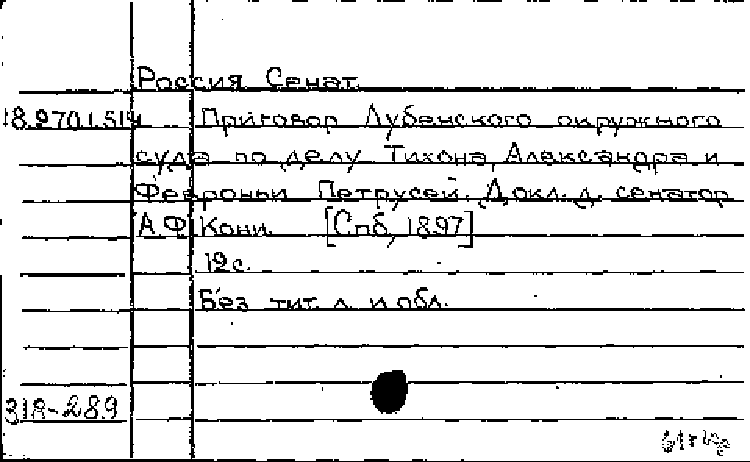 Россия Сенат.
18.9701.514 Приговор Лубенского окружного
суда по делу Тихона, Александра и
Февроньи Петрусей. Докл. д. сенатор
А.Ф. Кони. [Спб, 1897]
12 с.
Без тит. л. и обл.
318-289